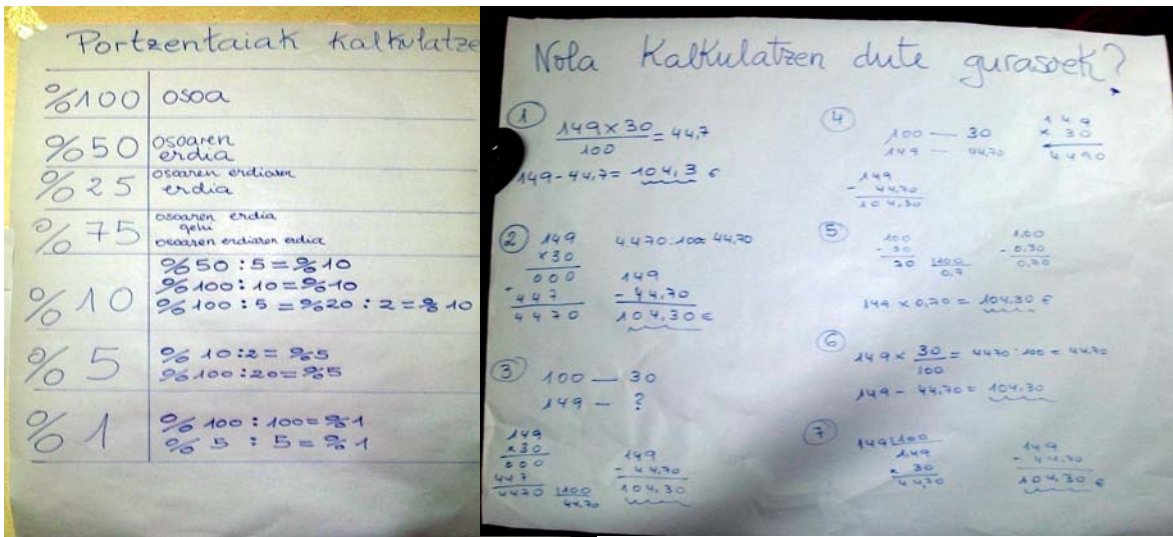 Portzentaiak kalkulatze
%100 osoa
%50 osoaren
erdia
%25 osoaren erdiaren
erdia
%75 osoaren erdia
gehi
osoaren erdiaren erdia
%10 %50 : 5 = %10
%100 : 10 = %10
%100 : 5 = %20 : 2 = %10
%5 %10 : 2 = %5
%100 : 20 = %5
%1 %100 : 100 = %1
%5 : 5 = %1
Nola kalkulatzen dute gurasoek?
1
149 x 30
100
= 44,7
149 - 44,7 = 104,3 €
2
149
x 30
000
447
4470
4.470 : 100 = 44,70
149
- 44,70
104,30 €
3
100 — 30
149 — ?
149
x 30
000
447
4470 100
44,70
149
- 44,70
104,30
4
100 — 30
149 — 44,70
149
x 30
4490
149
- 44,70
104,30
5
100
- 30
100
0,7
- 0,30
0,70
149 x 0,70 = 104,30 €
6
149 x 30
100
= 4470 : 100 = 44,70
149 - 44,70 = 104,30
7
149 100
1,49
x 30
44,70
149
- 44,70
104,30 €